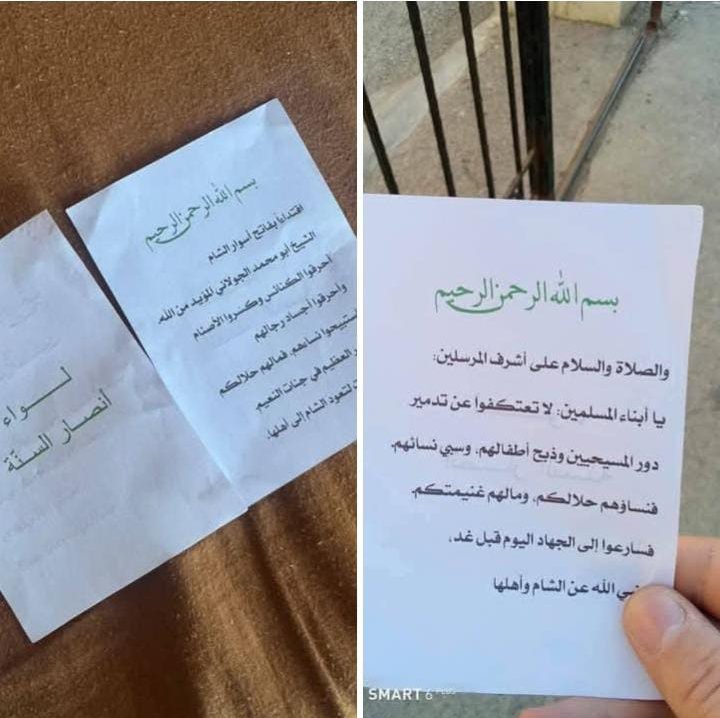 بسم الله الرحمن الرحيم
اقتداءاً بفاتح أسوار الشام
الشيخ أبو محمد الجولاني المؤيد من الله.
أحرقوا الكنائس وكسروا الأصنام
وأحرقوا أجساد رجالهم
نساءهم، فمالهم حلالكم
العظيم في جنات النعيم.
لتعود الشام إلى أهلها.
لواء
انصار السنة
بسم الله الرحمن الرحيم
والصلاة والسلام على أشرف المرسلين:
يا أبناء المسلمين: لا تعتكفوا عن تدمير
دور المسيحيين وذبح أطفالهم، وسبي نسائهم.
فنساؤهم حلالكم، ومالهم غنيمتكم.
فسارعوا إلى الجهاد اليوم قبل غد،
الله عن الشام وأهلها
SMART 6 PLUS